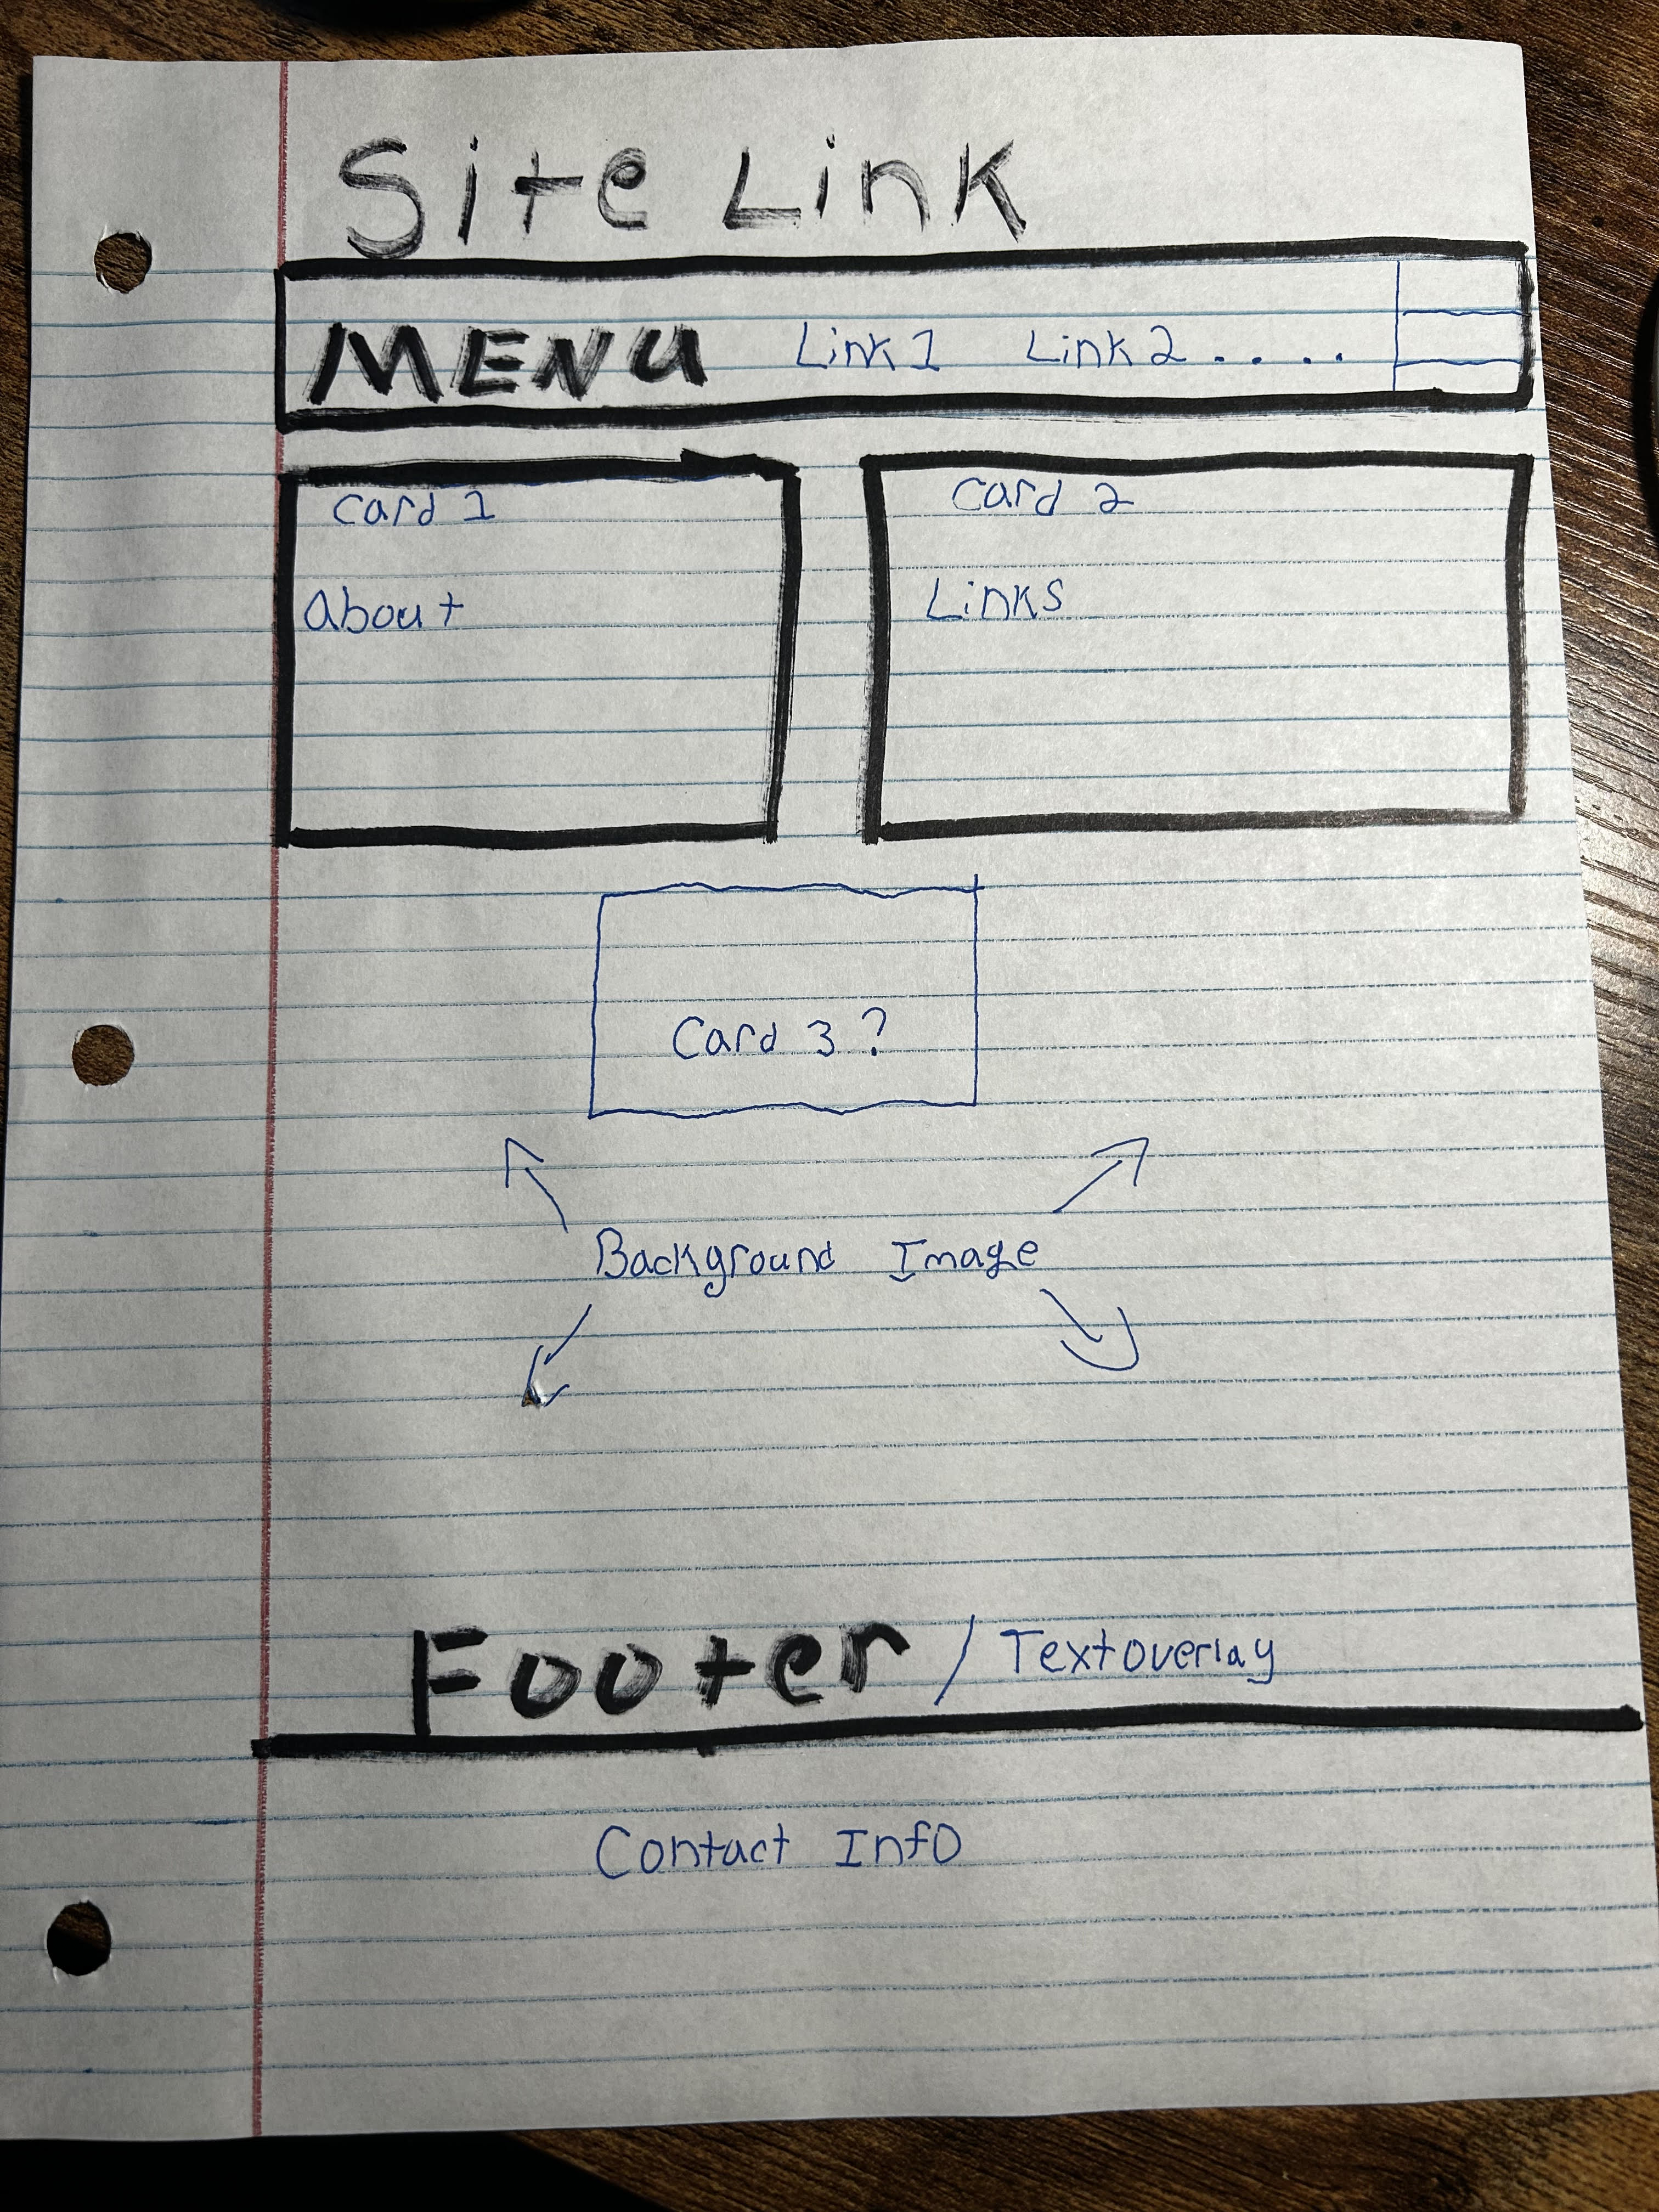 Site Link
MENU Link 1 Link 2 . . . . .
Card 1
About
Card 2
Links
Card 3 ?
Background Image
Footer / Text overlay
Contact Info